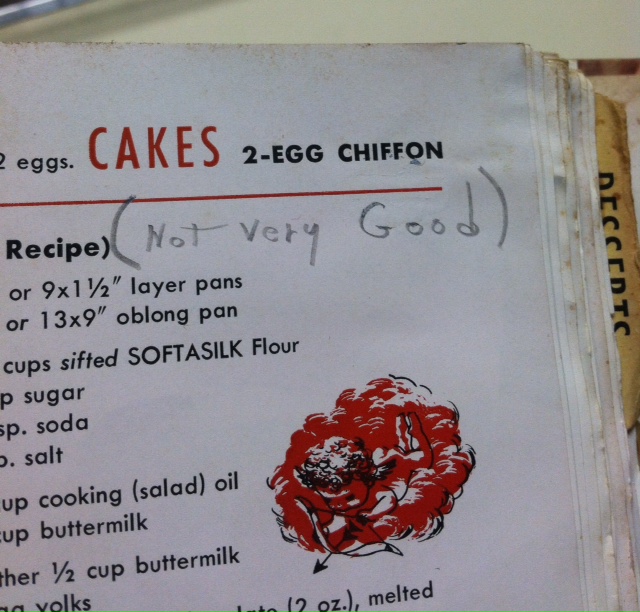 2 eggs. CAKES 2-EGG CHIFFON
Recipe) (Not very Good)
or 9x1½" layer pans
or 13x9" oblong pan
cups sifted SOFTASILK Flour
p sugar
sp. soda
p. salt
up cooking (salad) oil
cup buttermilk
ther ½ cup buttermilk
gg yolks
late (2 oz.), melted
DESSERTS